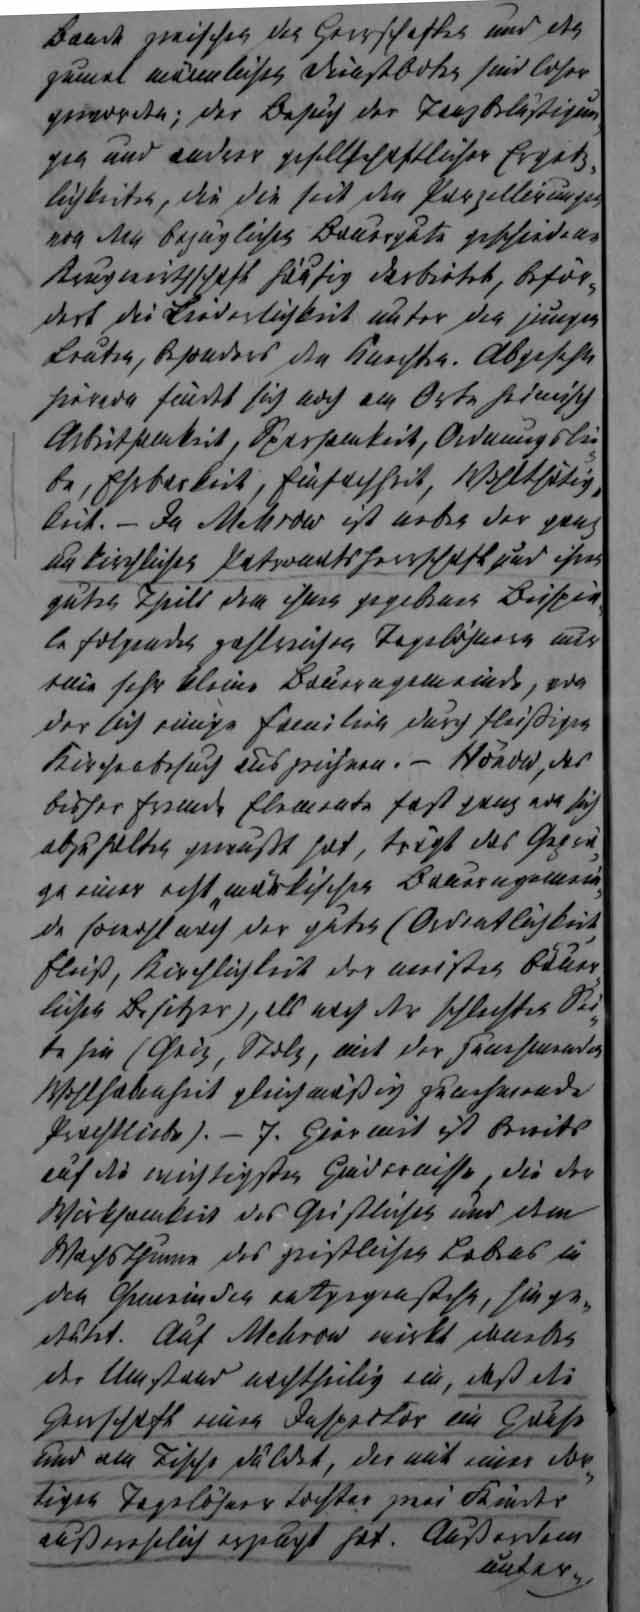 Bande zwischen den Herrschaften und den
zumal männlichen Dienstboten sind loser
geworden; der Besuch der Tanzbelustigun-
gen und anderer gesellschaftlicher Ergötz-
lichkeiten, die die seit den Parzellierungen
von den bezüglichen Bauergute geschiedene
Krugwirthschaft häufig darbietet, beför-
dert die Liederlichkeit unter den jungen
Leuten, besonders den Knechten. Abgesehn
hiervon findet sich noch am Orte heimisch
Arbeitsamkeit, Sparsamkeit, Ordnungslie-
be, Ehrbarkeit, Einfachheit, Wohlthätig-
keit. – In Mehrow ist neben der ganz
unkirchlichen Patronatsherrschaft und ihren
guten Theils dem ihnen gegebenen Beispie-
le folgenden zahlreichen Tagelöhnern nur
eine sehr kleine Bauerngemeinde, von
der sich einige Familien durch fleißigen
Kirchenbesuch auszeichnen. – Hönow, das
bisher fremde Elemente fast ganz von sich
abzuhalten gewußt hat, trägt das Geprä-
ge einer echt märkischen Bauerngemein-
de sowohl nach der guten (Ordentlichkeit,
Fleiß, Kirchlichkeit der meisten bäuer-
lichen Besitzer), als nach der schlechten Sei-
te hin (Geiz, Stolz, mit der zunehmenden
Wohlhabenheit gleichmäßig zunehmende
Prachtliebe). – 7. Hiermit ist bereits
auf die wichtigsten Hindernisse, die der
Wirksamkeit des Geistlichen und dem
Wachsthume des geistlichen Lebens in
den Gemeinden entgegenstehn, hinge-
deutet. Auf Mehrow wirkt daneben
der Umstand nachtheilig ein, daß die
Herrschaft einen Inspector im Hause
und am Tische duldet, der mit einer dor-
tigen Tagelöhnertochter zwei Kinder
außerehelich erzeugt hat. Außerdem
unter-